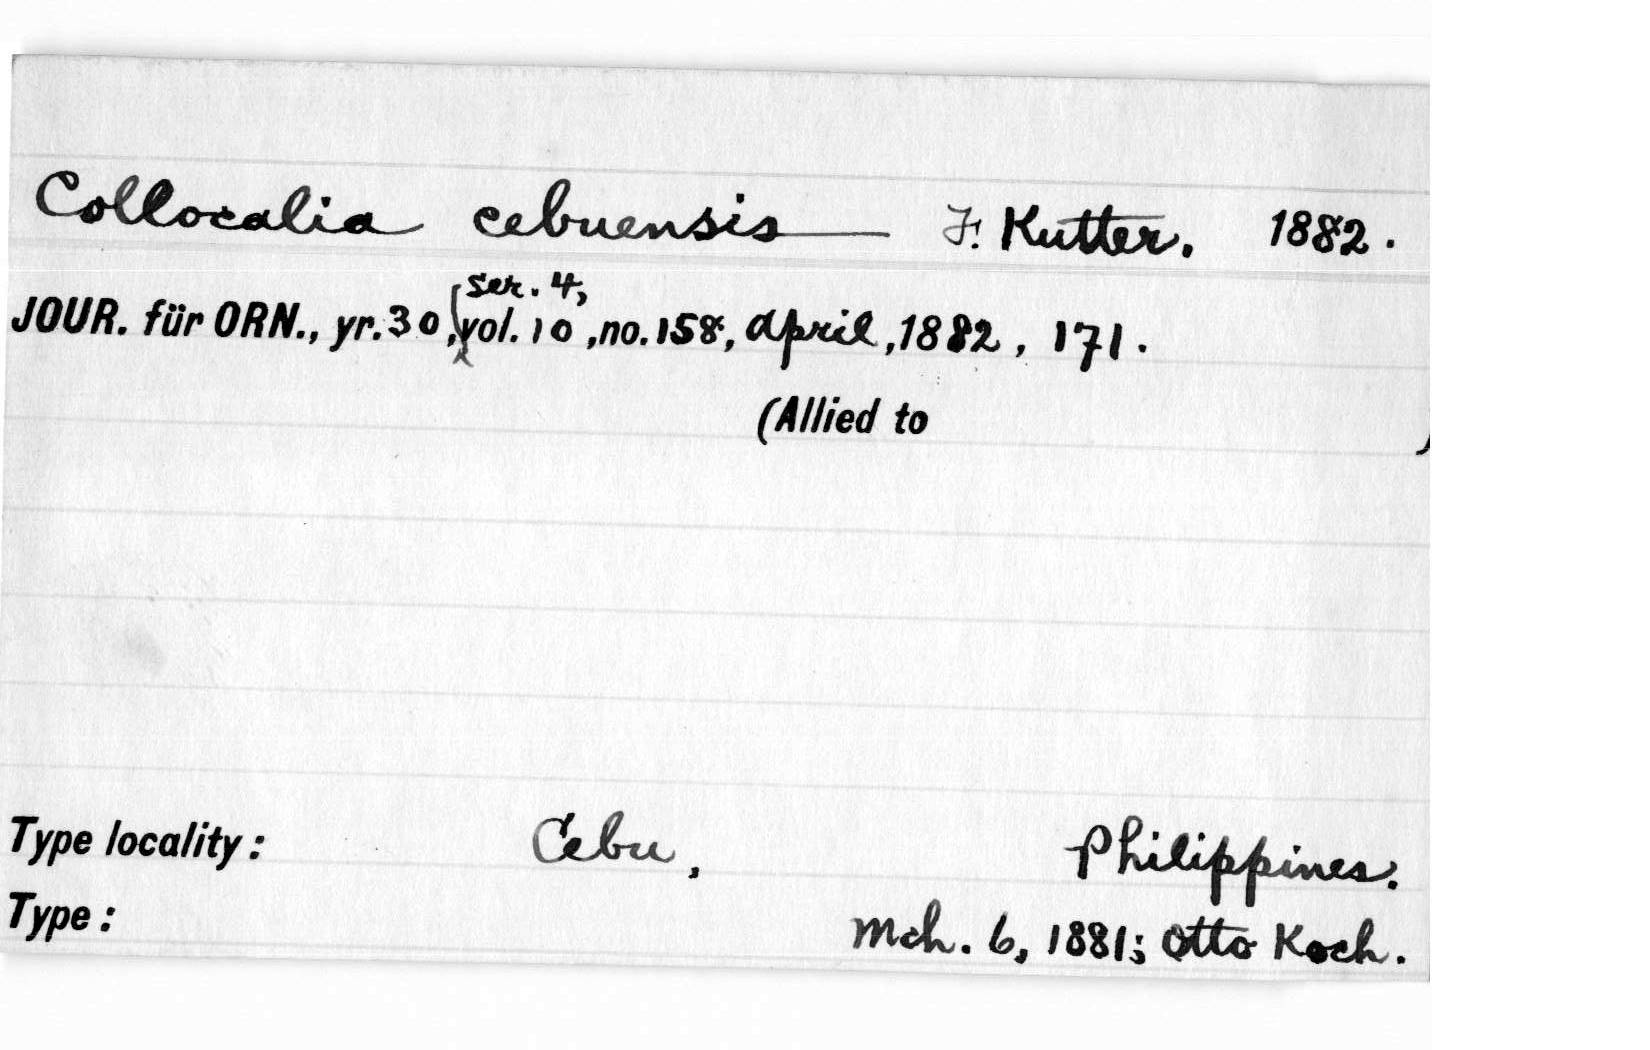 Collocalia cebuensis — F. Kutter, 1882.
ser. 4,
JOUR. für ORN., yr. 30, vol. 10, no. 158, April, 1882, 171.
(Allied to )
Type locality: Cebu, Philippines.
Type: Mch. 6, 1881; Otto Koch.